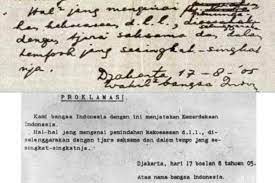 Hal² jang mengenai
kekoeasaan d.l.l.,
dengan tjara saksama dan
tempoh jang sesingkat-singkat
nja.
Djakarta 17-8-'05
Wakil² bangsa Indon
PROKLAMASI
Kami bangsa Indonesia dengan ini menjatakan Kemerdekaan
Indonesia.
Hal-hal jang mengenai pemindahan kekoeasaan d.l.l., di-
selenggarakan dengan tjara saksama dan dalam tempo jang se-
singkat-singkatnja.
Djakarta, hari 17 boelan 8 tahoen 05.
Atas nama bangsa Indonesia.